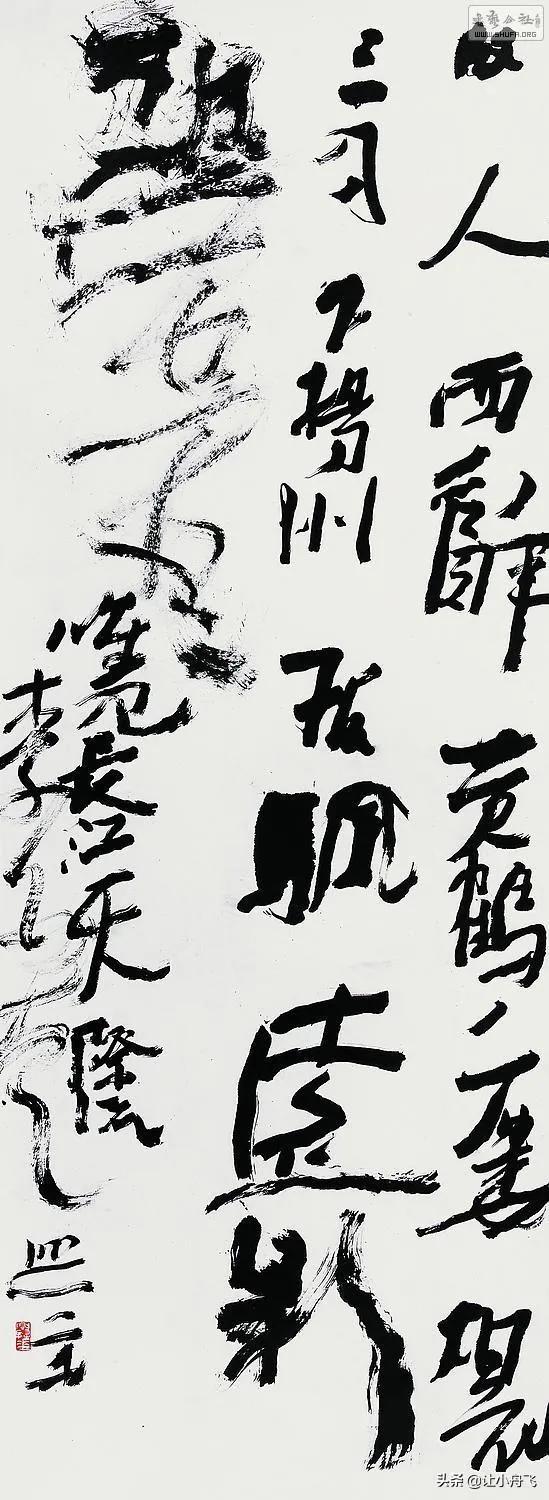 故人西辭黄鶴樓煙花
三月下揚州孤帆遠影
碧空盡
唯見長江天際流
李白
WWW.SHUFA.ORG
头条 @让小舟飞